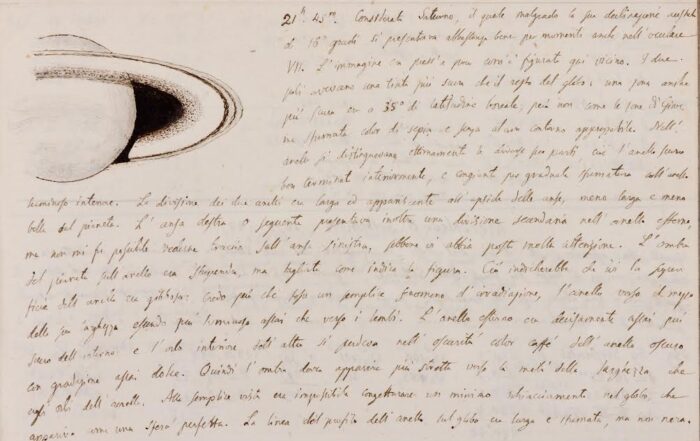 21h. 45m. Considerato Saturno, il quale malgrado la sua declinazione australe
di 16° gradi si presentava abbastanza bene per momenti anche nell'oculare
VII. L'immagine era press'a poco com'è figurata qui vicino. I due
poli avevano una tinta più scura che il resto del globo: una zona anche
più scura era a 35° di latitudine boreale, però non come le zone di Giove,
ma sfumata color di seppia e senza alcun contorno apprezzabile. Nell'
anello si distinguevano ottimamente le diverse parti cioè l'anello scuro
ben terminato interiormente, e congiunto per graduata sfumatura coll'anello
luminoso interno. La divisione dei due anelli era larga ed appariscente all'apside delle anse, meno larga e meno
bella del pianeta. L'ansa destra o seguente presentava inoltre una divisione secondaria nell'anello esterno,
ma non mi fu possibile vederne traccia sull'ansa sinistra, sebbene ci abbia posto molta attenzione. L'ombra
del pianeta sull'anello era stupenda, ma tagliata come indica la figura. Ciò indicherebbe che ivi la super
ficie dell'anello era gibbosa: credo più che fosse un semplice fenomeno d'irradiazione, l'anello verso il mezzo
della sua larghezza essendo più luminoso assai che verso i lembi. L'anello esterno era decisamente assai più
scuro dell'interno: e l'orlo interiore di si perdeva nell'oscurità color caffè dell'anello oscuro
con gradazione assai dolce. Quindi l'ombra dovea apparire più stretta verso la metà della larghezza, che
negli orli dell'anello. Alla semplice vista era impossibile congetturare un minimo schiacciamento nel globo, che
appariva come una sfera perfetta. La linea del profilo dell'anello sul globo era larga e sfumata, ma non nera.